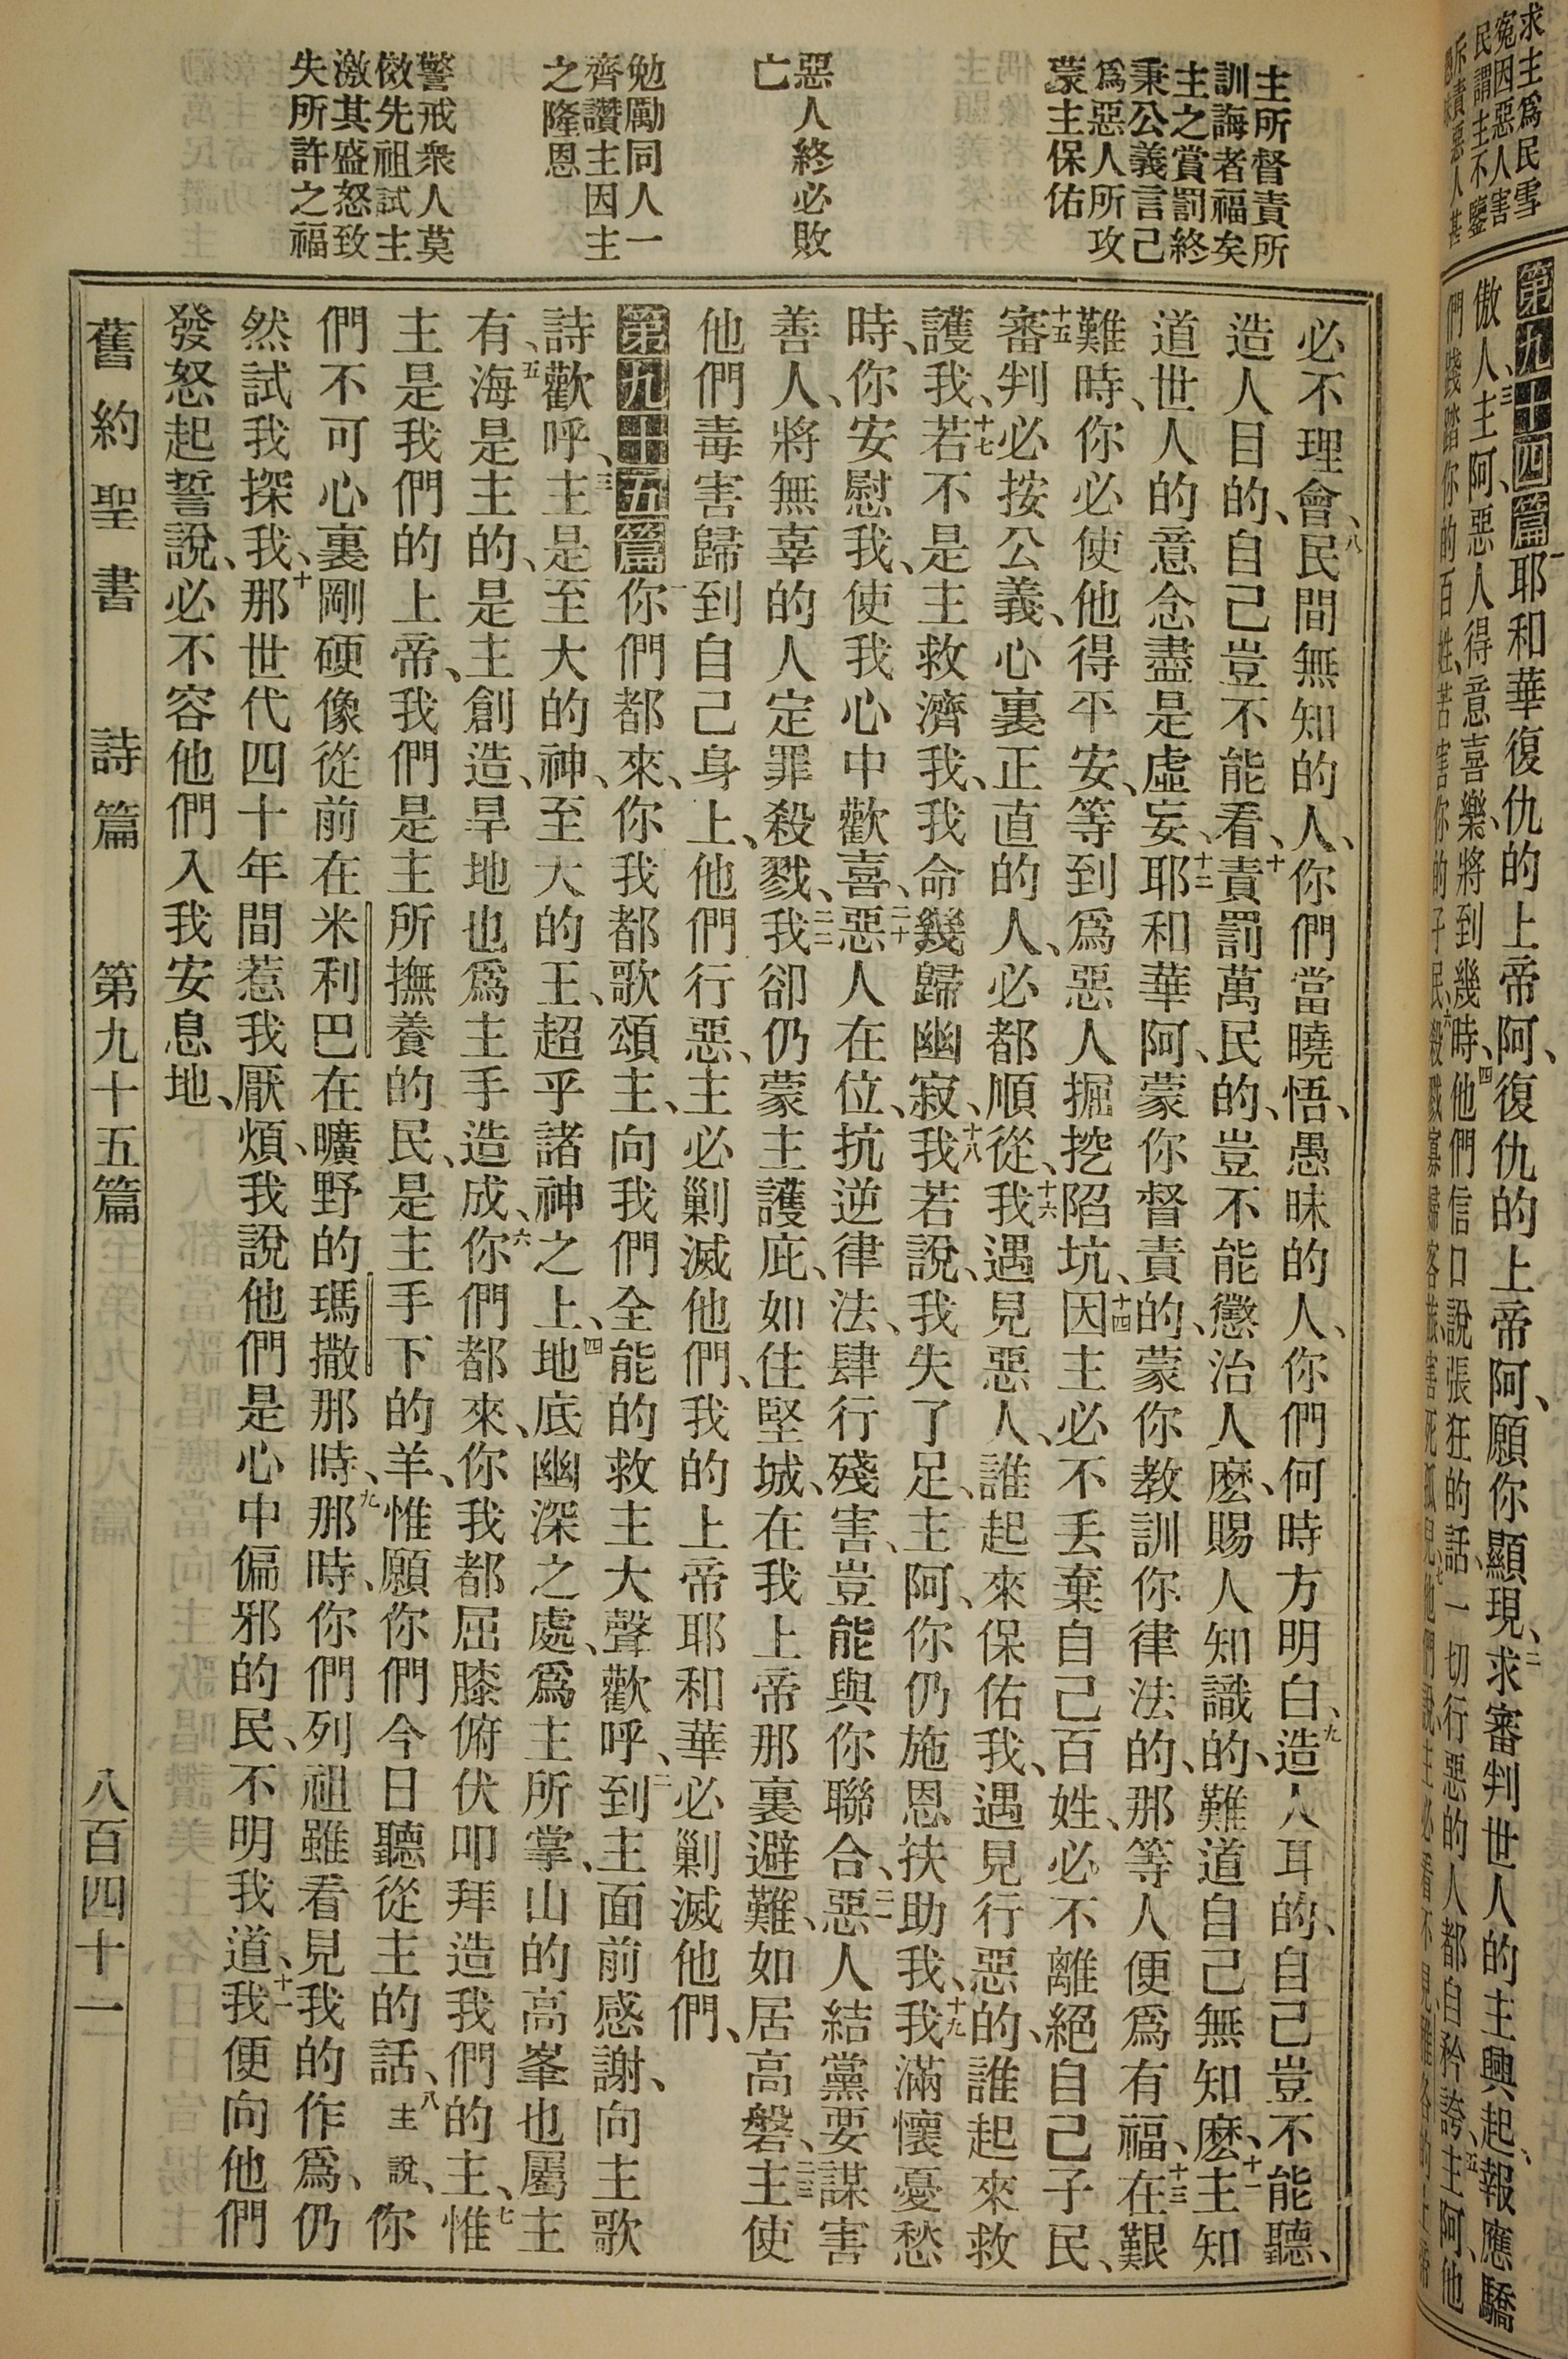 求主爲民雪
寃因惡人害
民謂主不鑒
斥責惡人甚
第九十四篇一耶和華復仇的上帝阿、復仇的上帝阿、願你顯現、二求審判世人的主興起、報應驕
傲人、三主阿、惡人得意喜樂、將到幾時、四他們信口說張狂的話、一切行惡的人都自矜誇、五主阿、他
們踐踏你的百姓、苦害你的子民、六殺戮寡婦客旅、害死孤兒、七他們說、主必看不見、
主所督責所
訓誨者福矣
主之賞罰終
秉公義言己
爲惡人所攻
蒙主保佑
惡人終必敗
亡
勉勵同人一
齊讚主因主
之隆恩
警戒衆人莫
傚先祖試主
激其盛怒致
失所許之福
必不理會、八民間無知的人、你們當曉悟、愚昧的人、你們何時方明白、九造人耳的、自己豈不能聽、
造人目的、自己豈不能看、十責罰萬民的、豈不能懲治人麽、賜人知識的、難道自己無知麽、十一主知
道世人的意念盡是虛妄、十二耶和華阿、蒙你督責的、蒙你教訓你律法的、那等人便爲有福、十三在艱
難時、你必使他得平安、等到爲惡人掘挖陷坑、十四因主必不丟棄自己百姓、必不離絕自己子民、
十五審判必按公義、心裏正直的人、必都順從、十六我遇見惡人、誰起來保佑我、遇見行惡的、誰起來救
護我、十七若不是主救濟我、我命幾歸幽寂、十八我若說、我失了足、主阿、你仍施恩扶助我、十九我滿懷憂愁
時、你安慰我、使我心中歡喜、二十惡人在位、抗逆律法、肆行殘害、豈能與你聯合、二一惡人結黨要謀害
善人、將無辜的人定罪殺戮、二二我卻仍蒙主護庇、如住堅城、在我上帝那裏避難、如居高磐、二三主使
他們毒害歸到自己身上、他們行惡、主必剿滅他們、我的上帝耶和華必剿滅他們、
第九十五篇一你們都來、你我都歌頌主、向我們全能的救主大聲歡呼、二到主面前感謝、向主歌
詩歡呼、三主是至大的神、至大的王、超乎諸神之上、四地底幽深之處、爲主所掌、山的高峯也屬主
有、五海是主的、是主創造、旱地也爲主手造成、六你們都來、你我都屈膝俯伏叩拜造我們的主、七惟
主是我們的上帝、我們是主所撫養的民、是主手下的羊、惟願你們今日聽從主的話、八主說、你
們不可心裏剛硬像從前在米利巴在曠野的瑪撒那時、九那時、你們列祖雖看見我的作爲、仍
然試我探我、十那世代四十年間惹我厭煩、我說他們是心中偏邪的民、不明我道、十一我便向他們
發怒起誓說、必不容他們入我安息地、
舊約聖書 詩篇 第九十五篇 八百四十一